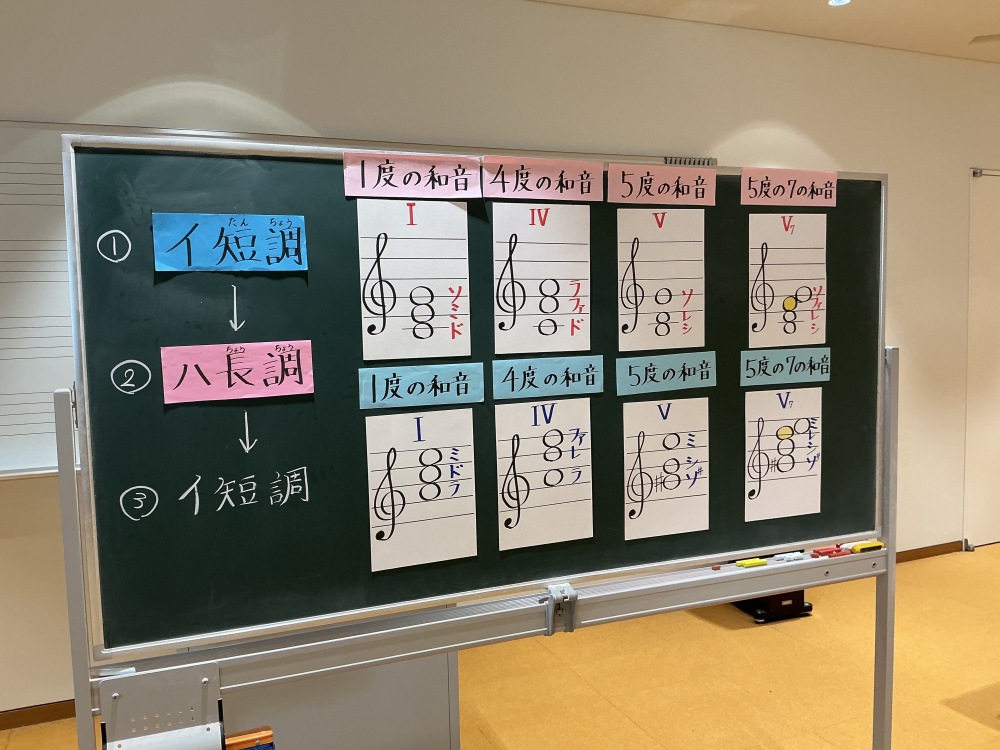 ① イ短調
たん ちょう
↓
② ハ長調
ちょう ちょう
↓
③ イ短調
1度の和音 4度の和音 5度の和音 5度の7の和音
I IV V V7
ソ ミ ド
ラ ファ ド
ソ レ シ
ソ ファ レ シ
1度の和音 4度の和音 5度の和音 5度の7の和音
I IV V V7
ミ ド ラ
ファ レ ラ
ミ シ ソ#
ミ レ シ ソ#